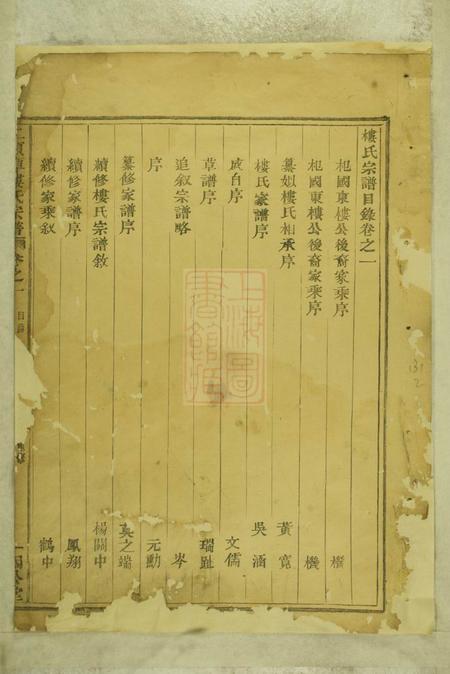 樓氏宗譜目錄卷之一
杞國東樓公後裔家乘序 檟
杞國東樓公後裔家乘序 機
纂姒樓氏相承序 黃寬
樓氏家譜序 吳涵
成自序 文儒
草譜序 瑞趾
追叙宗譜略 岑
序 元勳
纂修家譜序 吳之端
續修樓氏宗譜敘 楊關中
續修家譜序 鳳翔
續修家乘叙 鶴中
樓氏宗譜 卷之一 目錄
上海圖書館藏
131
2